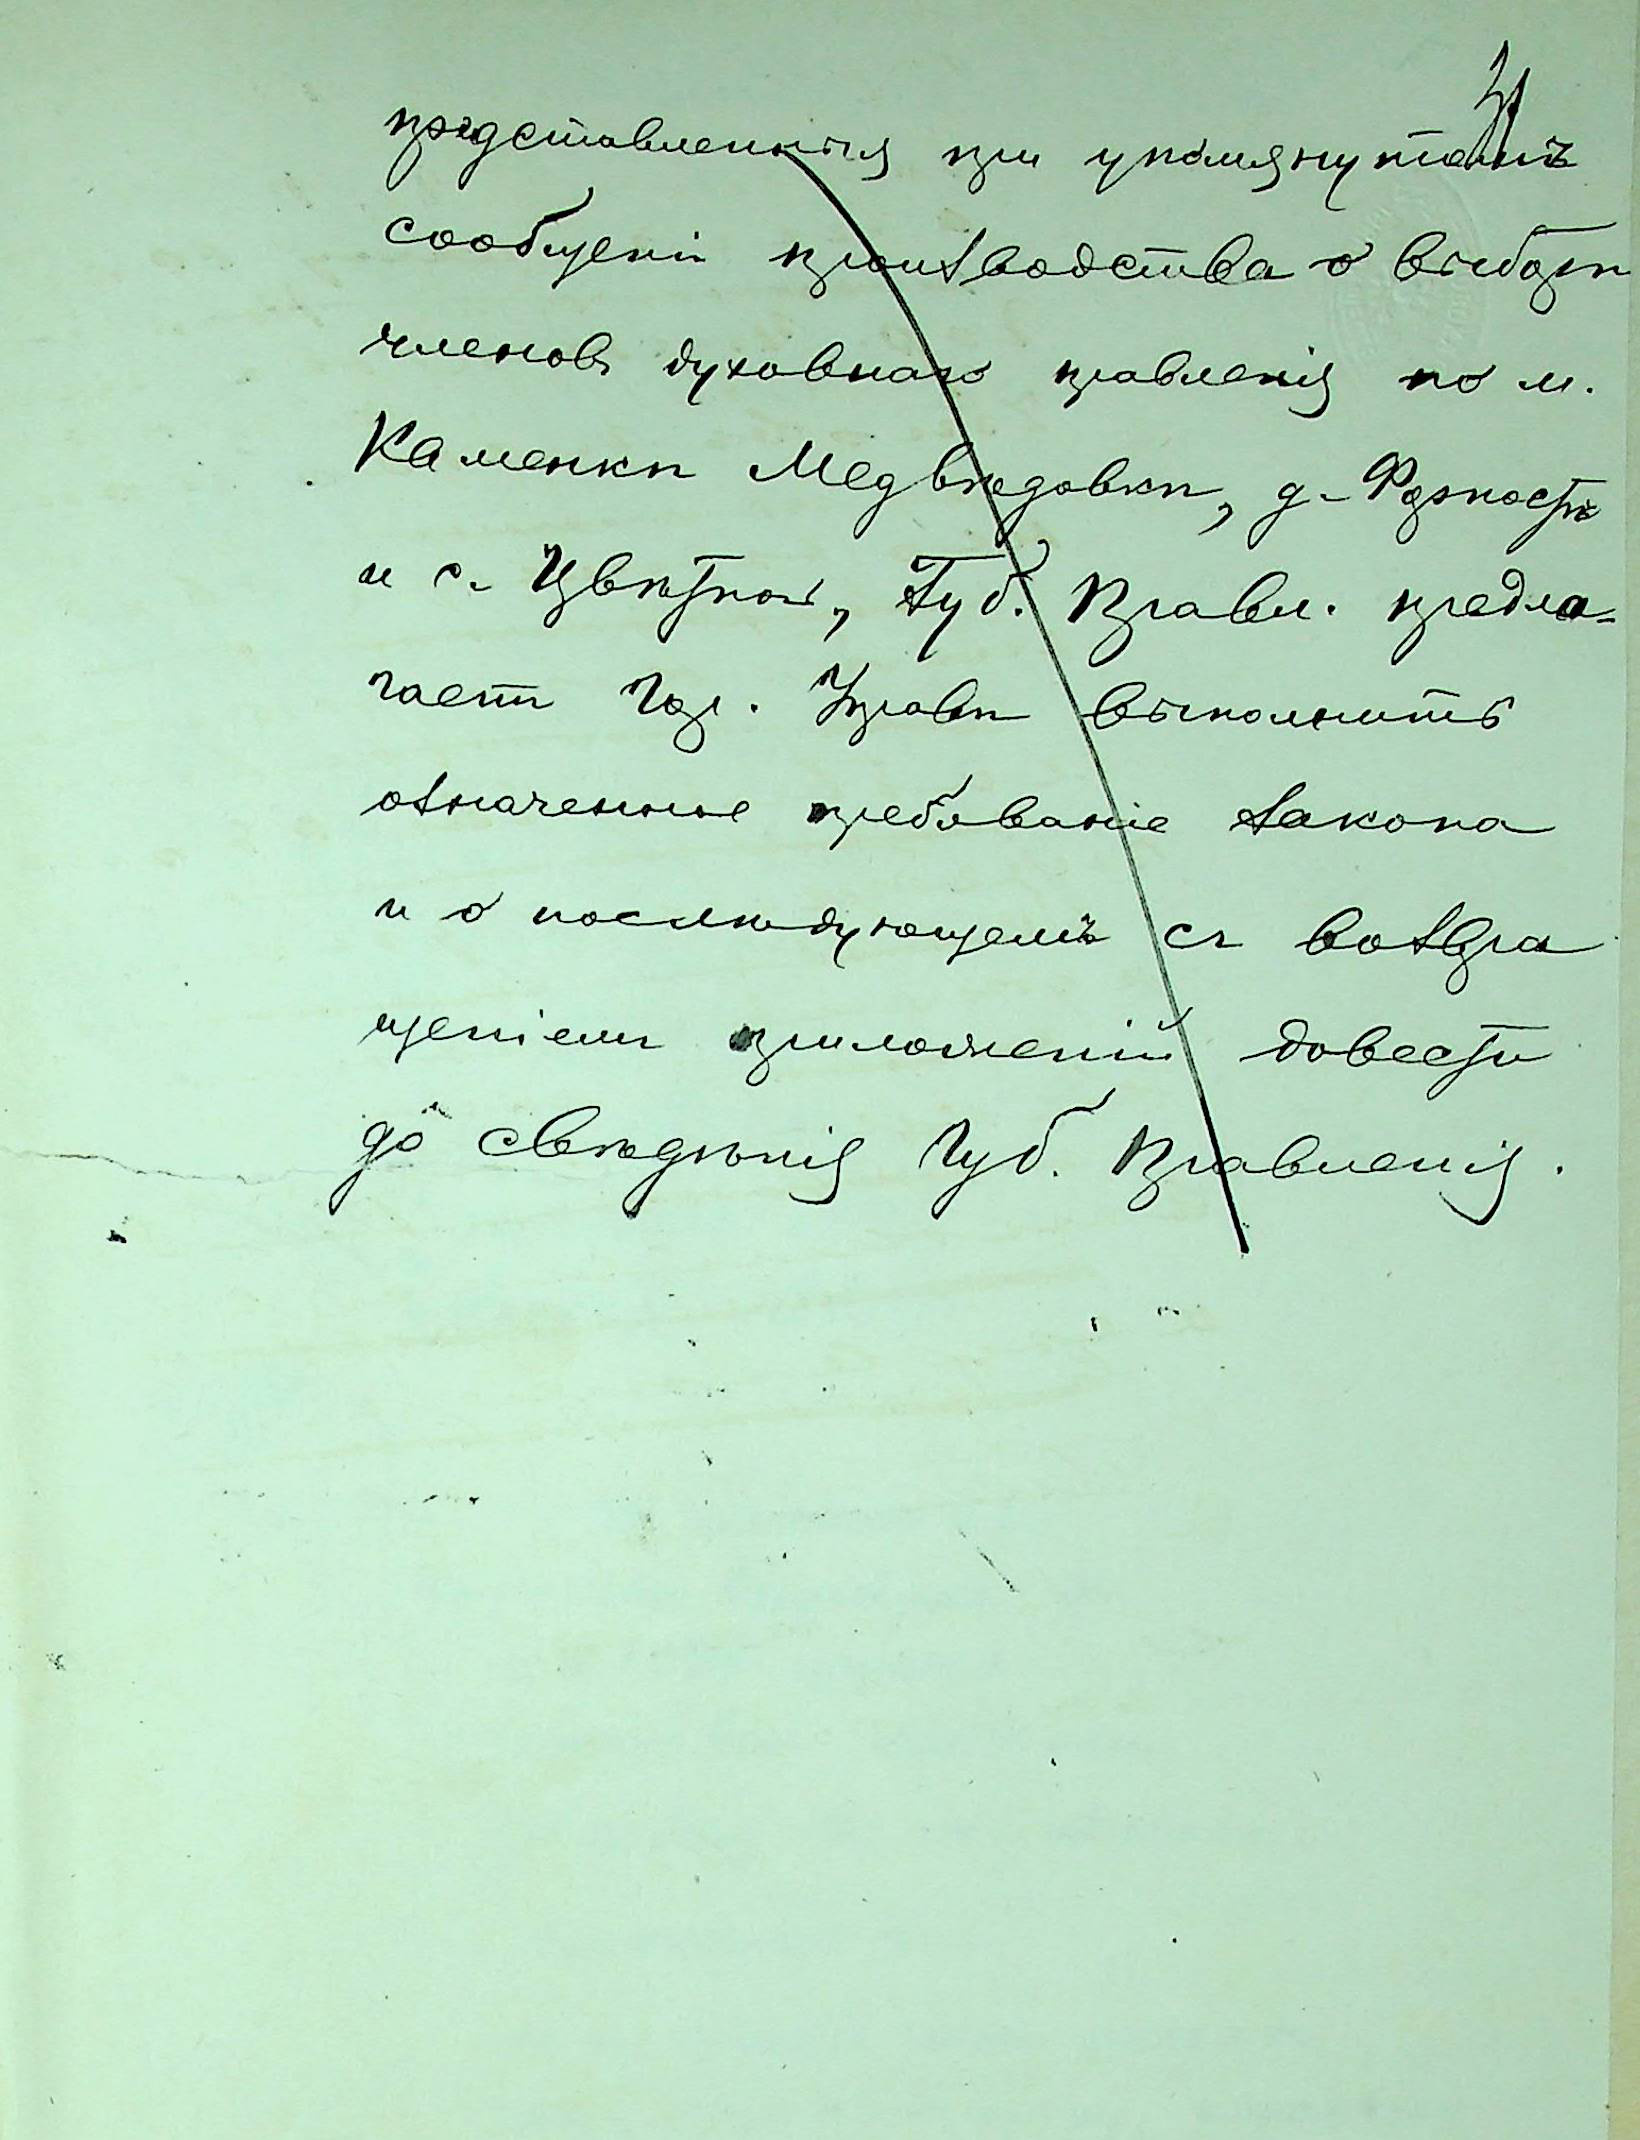 представленныя при упомянутомъ
сообщеніи производства о выборѣ
членовъ духовнаго правленія по м.
Каменкѣ Медвѣдовкѣ, д.
и с. Цвѣтной, Губ. Правл. предла-
гаетъ Гор. Управѣ выполнить
означенное требованіе закона
и о послѣдующемъ съ возвра
щеніемъ приложеній довести
до свѣдѣнія Губ. Правленія.